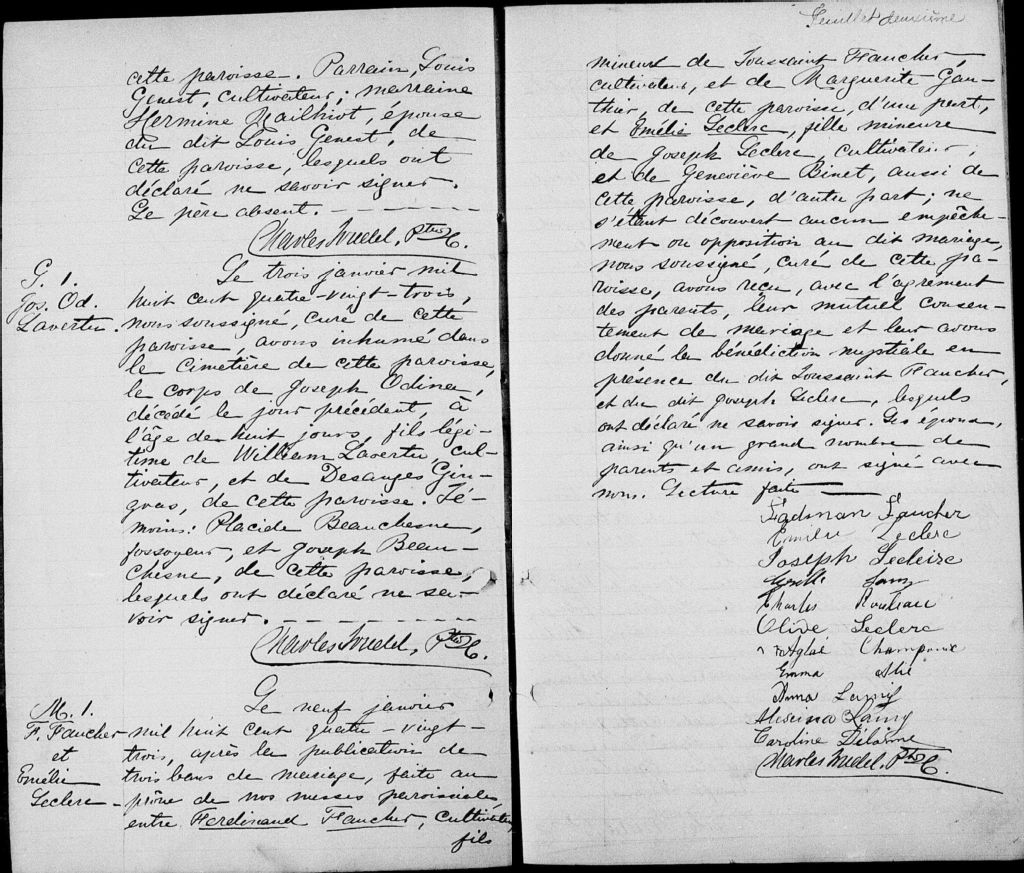 cette paroisse. Parrain, Louis
Genest, cultivateur; marraine
Hermine Mailhiot, épouse
du dit Louis Genest, de
cette paroisse, lesquels ont
déclaré ne savoir signer.
Le père absent.
Charles Trudel, Ptre C.
S. 1.
Jos. Od.
Lavertu.
Le trois janvier mil
huit cent quatre-vingt-trois,
nous soussigné, curé de cette
paroisse, avons inhumé dans
le cimetière de cette paroisse,
le corps de Joseph Odina,
décédé le jour précédent, à
l'âge de huit jours, fils légi-
time de William Lavertu, cul-
tivateur, et de Desanges Gin-
gras, de cette paroisse. Té-
moins: Placide Beauchesne,
fossoyeur, et Joseph Beau-
chesne, de cette paroisse,
lesquels ont déclaré ne sa-
voir signer.
Charles Trudel, Ptre C.
M. 1.
F. Faucher
et
Emélie
Leclerc
Le neuf janvier
mil huit cent quatre-vingt-
trois, après la publication de
trois bans de mariage, faite au
prône de nos messes paroissiales,
entre Ferdinand Faucher, cultivateur,
fils
Feuillet deuxième
mineur de Toussaint Faucher
cultivateur, et de Marguerite Gau-
thier, de cette paroisse, d'une part,
et Emélie Leclerc, fille mineure
de Joseph Leclerc, cultivateur,
et de Geneviève Binet, aussi de
cette paroisse, d'autre part; ne
s'étant découvert aucun empêche-
ment ou opposition au dit mariage,
nous soussigné, curé de cette pa-
roisse, avons reçu, avec l'agrément
des parents, leur mutuel consen-
tement de mariage et leur avons
donné la bénédiction nuptiale en
présence du dit Toussaint Faucher,
et du dit Joseph Leclerc, lesquels
ont déclaré ne savoir signer. Les époux,
ainsi qu'un grand nombre de
parents et amis, ont signé avec
nous. Lecture faite
Fadinan Faucher
Emélie Leclerc
Joseph Lecleire
Lamy
Charles Rouleau
Olive Leclerc
Aglaé Champoux
Emma
Anna Lamy
Alvina Lamy
Caroline Délorme
Charles Trudel, Ptre C.